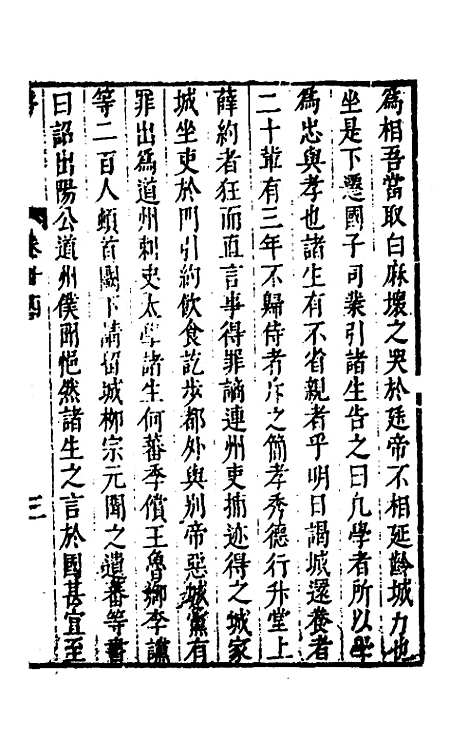 爲相吾當取白麻壞之哭於廷帝不相延齡城力也
坐是下遷國子司業引諸生告之曰凡學者所以學
爲忠與孝也諸生有不省親者乎明日謁城還養者
二十輩有三年不歸侍者斥之簡孝秀德行升堂上
薛約者狂而直言事得罪謫連州吏捕迹得之城家
城坐吏於門引約飲食訖步都外與別帝惡城黨有
罪出爲道州刺史太學諸生何蕃季償王魯卿李讜
等二百人頓首闕下請留城柳宗元聞之遺蕃等書
曰詔出陽公道州僕聞悒然諸生之言於國甚宜至
三